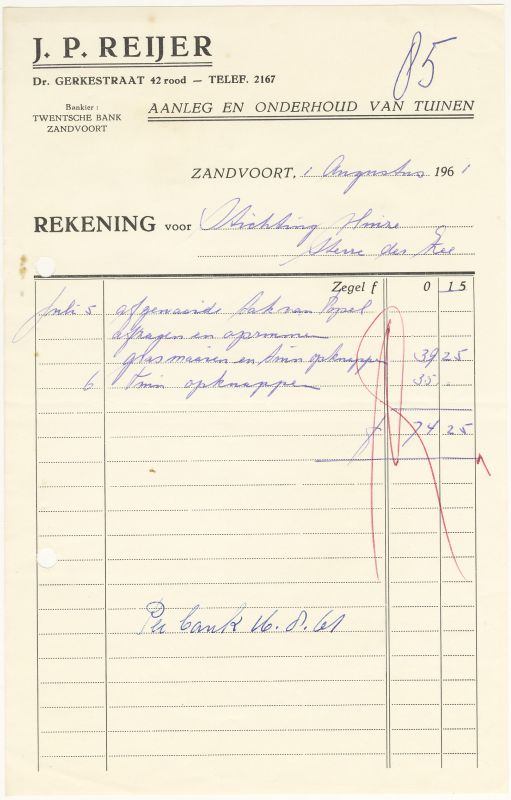 J. P. REIJER
85
Dr. GERKESTRAAT 42 rood — TELEF. 2167
Bankier :
TWENTSCHE BANK
ZANDVOORT
AANLEG EN ONDERHOUD VAN TUINEN
ZANDVOORT, 1 Augustus 1961
REKENING voor Stichting Huize
Sterre der Zee
Zegel f 0 15
Juli 5 afgewaaide tak van Popel
afzagen en opruimen
grasmaaien en tuin opknappen 39 25
6 tuin opknappen 35 .
f 74 25
Per bank 16.8.61